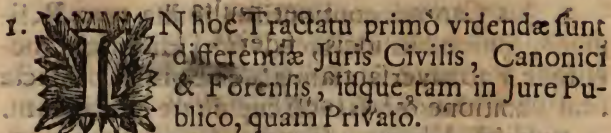 1. IN hoc Tractatu primò videndæ sunt
differentiæ Juris Civilis, Canonici
& Forensis, idque tam in Jure Pu-
blico, quam Privato.